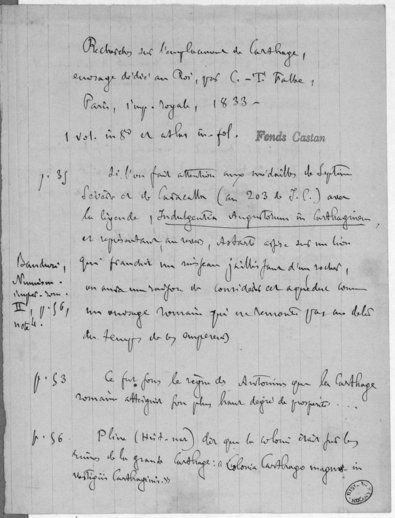 Recherches sur l'emplacement de Carthage,
ouvrage dédié au Roi, par C.-T. Falbe,
Paris, imp. royale, 1833 -
1 vol. in 8° et atlas in-fol. Fonds Castan
p. 35 Si l'on fait attention aux médailles de Septime
Sévère et de Caracalla (an 203 de J. C.) avec
la légende, Indulgentia Augustorum in Carthaginem,
et représentant, au revers, Astarté assise sur un lion
qui franchit un ruisseau jaillissant d'un rocher,
on aura une raison de considérer cet aqueduc comme
un ouvrage romain qui ne remonte pas au delà
du temps de ces empereurs)
Banduri,
Numism.
imper. rom.
II, p. 56,
note 4.
p. 53 Ce fut sous le règne des Antonins que la Carthage
romaine atteignit son plus haut degré de prospérité ....
p. 56 Pline (Hist. nat) dit que la colonie était sur les
ruines de la grande Carthage : « Colonia Carthago magnæ in
vestigiis Carthaginis. »